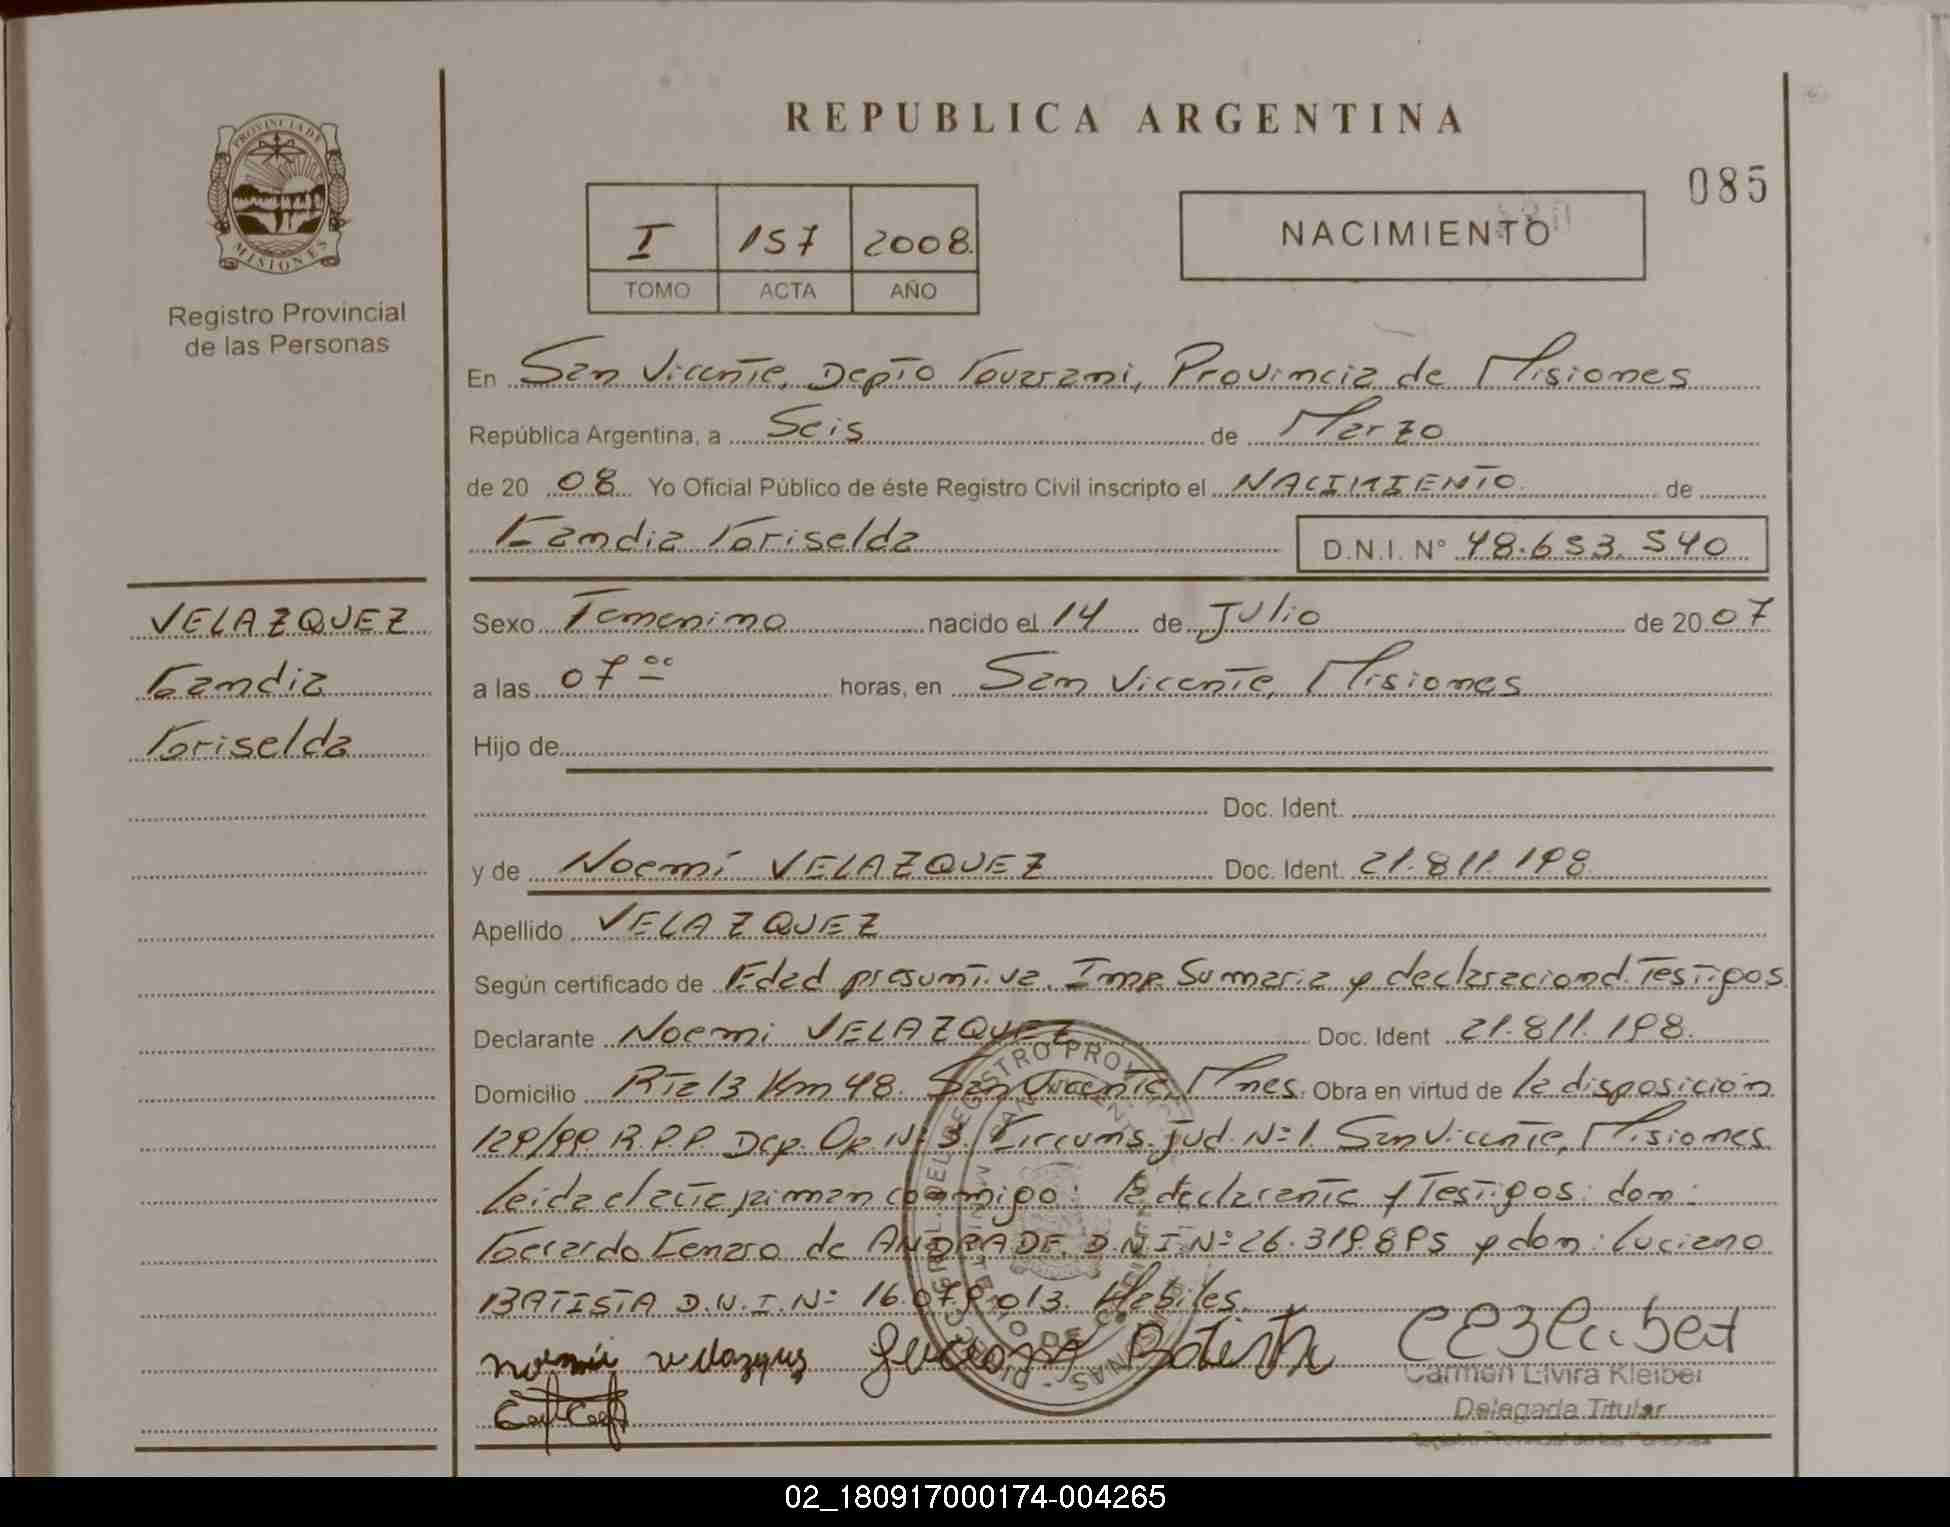 PROVINCIA DE
MISIONES
Registro Provincial
de las Personas
REPUBLICA ARGENTINA
085
I 157 2008.
TOMO ACTA AÑO
NACIMIENTO
En San Vicente, Depto Guarani, Provincia de Misiones
República Argentina, a Seis de Marzo
de 20 08 Yo Oficial Público de éste Registro Civil inscripto el NACIMIENTO de
Candia Griselda D.N.I. N° 48.653.540
VELAZQUEZ
Candia
Griselda
Sexo Femenino nacido el 14 de Julio de 20 07
a las 07 oo horas, en San Vicente, Misiones
Hijo de
Doc. Ident.
y de Noemí VELAZQUEZ Doc. Ident. 21.811.198
Apellido VELAZQUEZ
Según certificado de Edad presuntiva. Inf. Sumaria y declaraciond. Testigos
Declarante Noemi VELAZQUEZ Doc. Ident 21.811.198.
Domicilio Rta 13 Km 48. San Vicente, Mnes. Obra en virtud de la disposición
129/99. R.P.P. Dep. Op. N: 3. Circuns. Jud. N: 1. San Vicente, Misiones
leida el acta firman conmigo: la declarante y Testigos: don:
Gerardo Genaro de ANDRADE D.N.I N: 26.319.895 y don: Luciano
BATISTA D.N.I. N: 16.079.013. Habiles.
Noemi velazquez Luciano Batista
Carmen Elvira Kleiber
Delegada Titular
Registro Provincial de las Personas
02_180917000174-004265